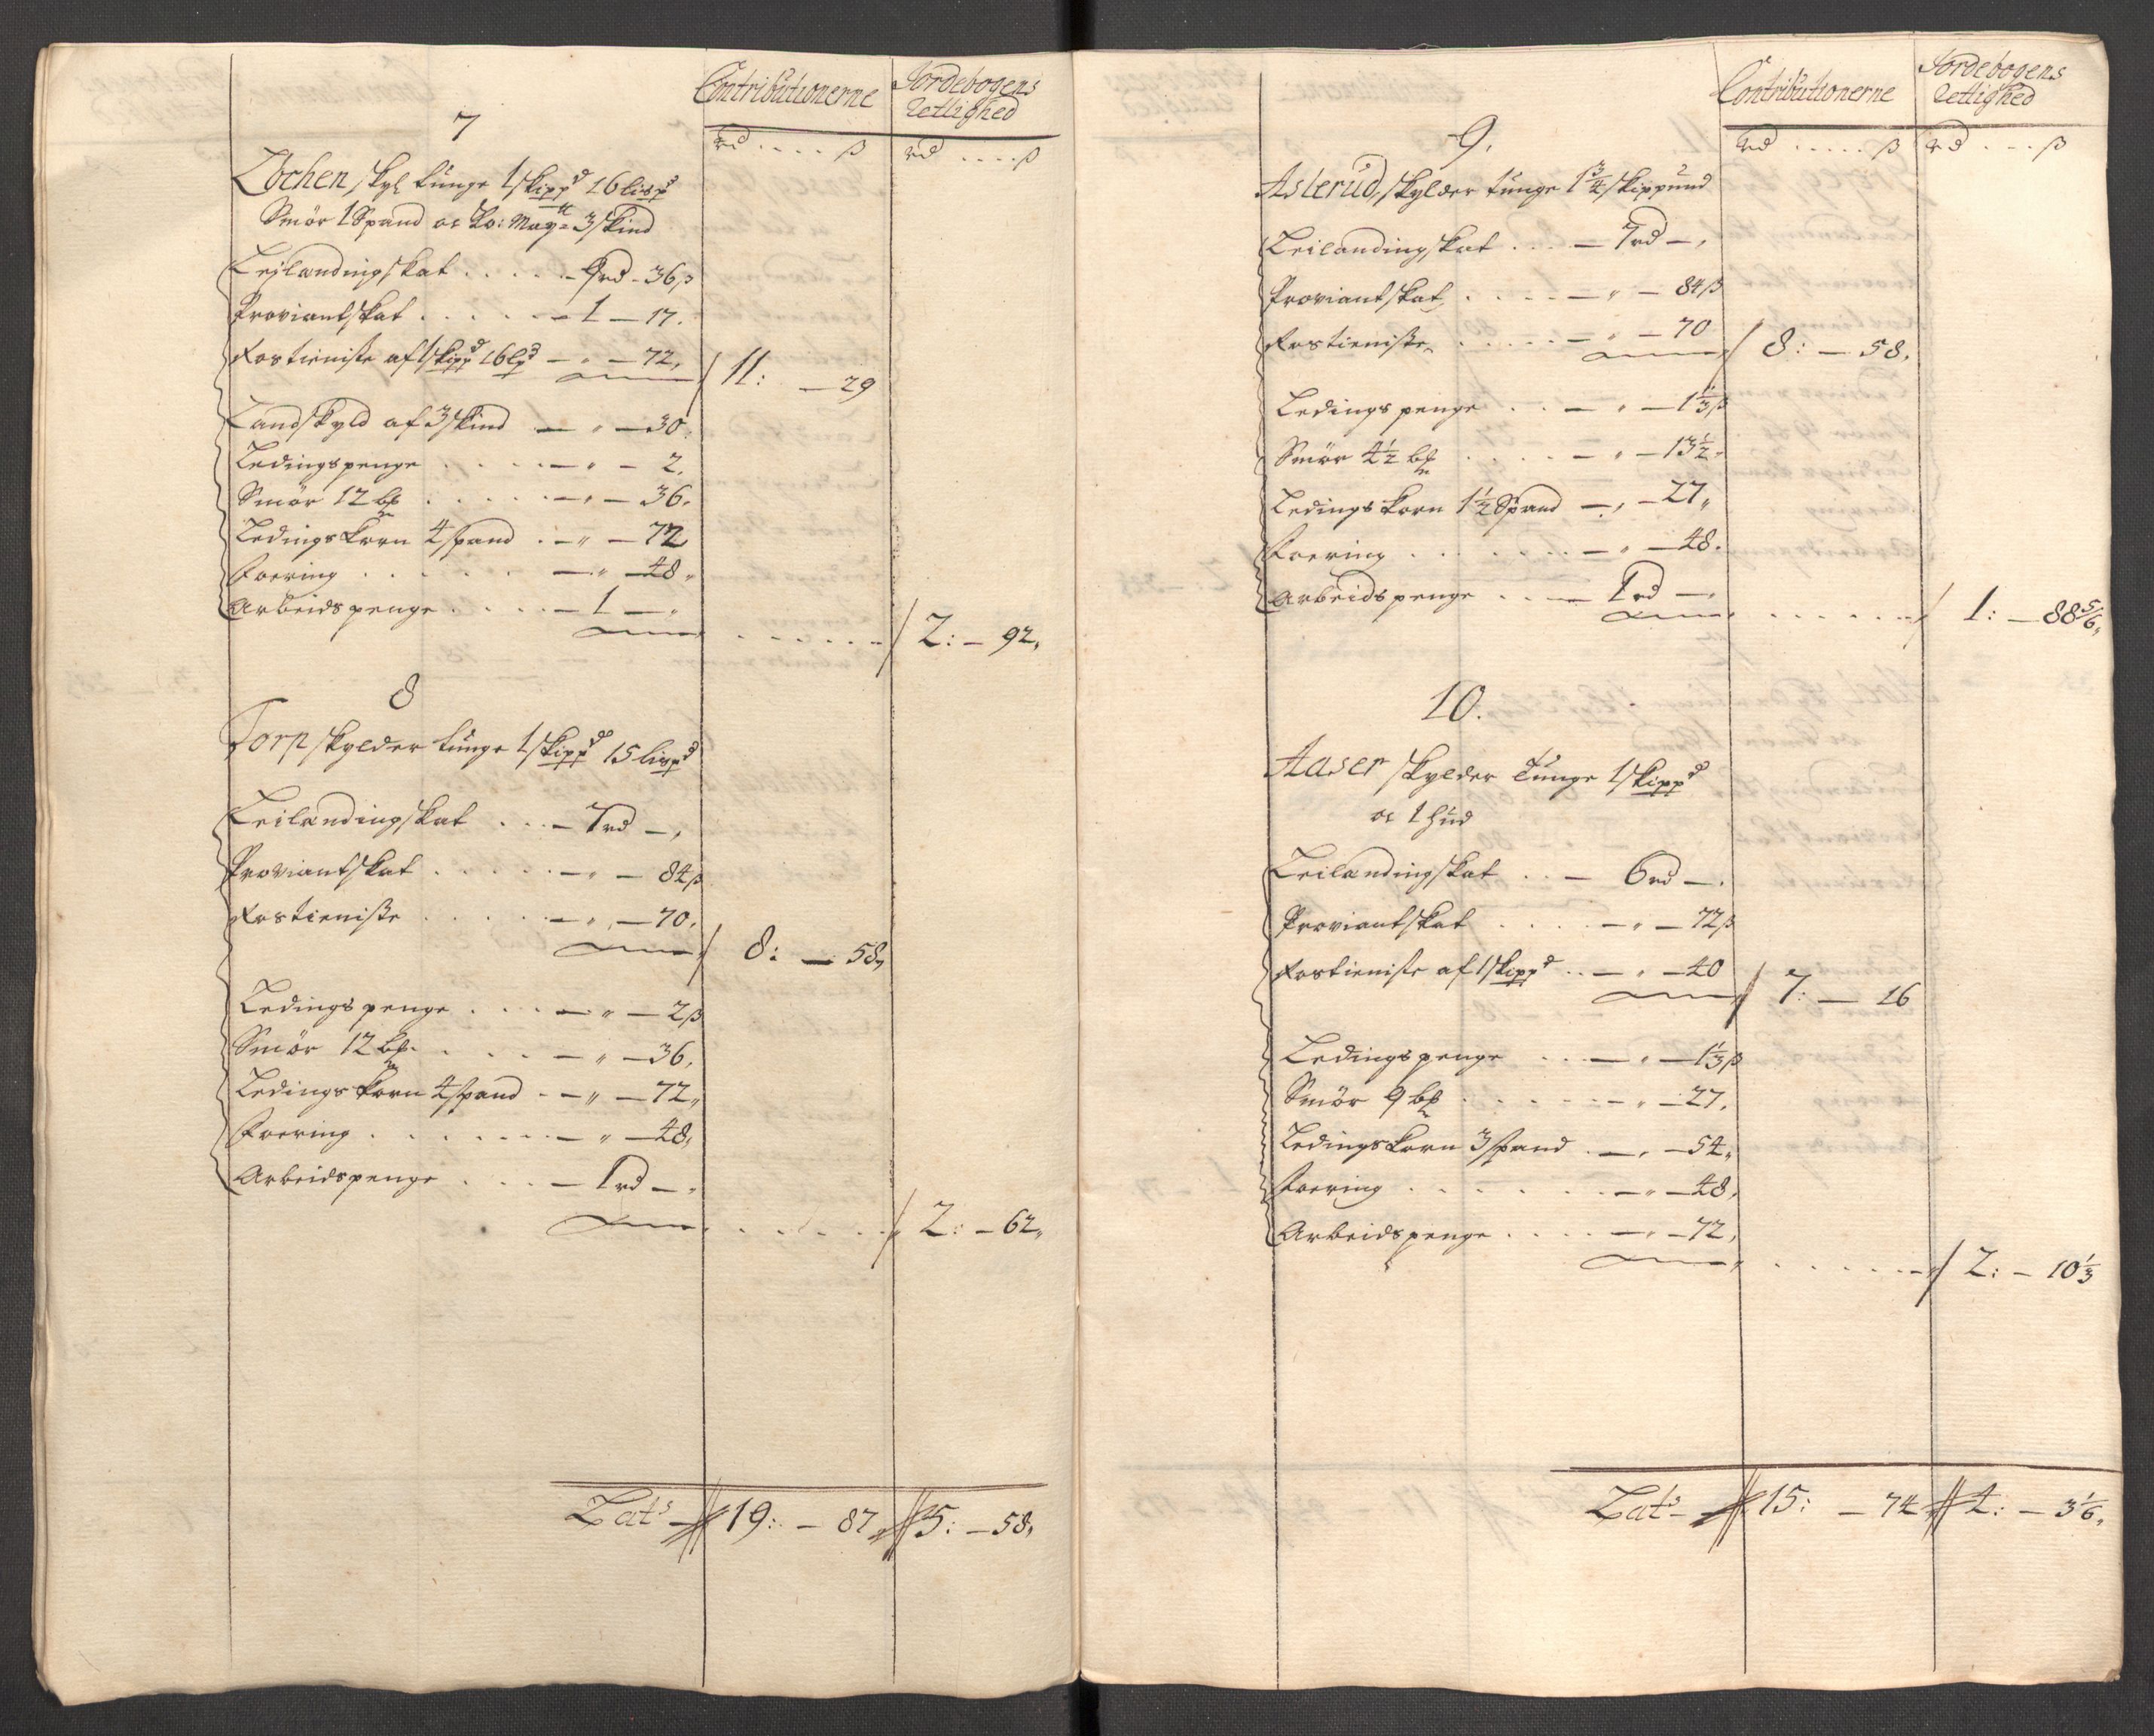 Contributionerne
Jordebogens Rettighed
7
rd .... ß
rd .... ß
Lochen skyl tunge 1 skippd 16 lispd
Smör 1 Spand oc Ko: Maytz 3 skind
Leilandingskat ..... - 9 rd - 36 ß
Proviantskat ..... - 1 - 17.
Rostieniste af 1 skippd 16 lpd - " - 72, / 11: - 29
Landskyld af 3 skind - " - 30.
Ledingspenge .... - " - 2.
Smör 12 bp ..... - " - 36.
Ledingskorn 4 spand . - " - 72
Foering ..... - " - 48 "
Arbeidspenge .... - 1 - "
...... / 2: - 92,
8
Torp skylder tunge 1 skippd 15 lispd
Leilandingskat ... - 7 rd - ,
Proviantskat ..... - " - 84 ß
Rostieniste ..... - " - 70.
/ 8: - 58,
Ledingspenge .... - " - 2 ß
Smör 12 bp. .... - " - 36,
Ledingskorn 4 spand . - " - 72 "
Foering ....... - " - 48,
Arbeidspenge .... - 1 rd - "
..... / 2: - 62 "
Lats - 19: - 87 5: - 58,
Contributionerne
Jordebogens Rettighed
9.
rd ..... ß
rd ... ß
Asterud, skylder tunge 1 3/4 skippund
Leilandingskat ... - 7 rd - ,
Proviantskat ..... - " - 84 ß
Rostieniste ..... - " - 70
/ 8: - 58.
Ledingspenge .. - " - 1 1/3 ß
Smör 4 1/2 bp .... - " - 13 1/2 "
Ledingskorn 1 1/2 Spand - , - 27 "
Foering ...... - " - 48.
Arbeidspenge ... - 1 rd - .
...... / 1: - 88 5/6 "
10.
Aaser skylder Tunge 1 skippd
oc 1 hud
Leilandingskat .. - 6 rd - .
Proviantskat .... - " - 72 ß
Rostieniste af 1 skippd .. - " - 40
/ 7: - 16
Ledingspenge ... - " - 1 1/3 ß
Smör 9 bp ..... - " - 27.
Ledingskorn 3 spand . - , - 54 "
Foering ...... - " - 48,
Arbeidspenge .... - " - 72,
...... / 2: - 10 1/3
Lats - 15: - 74 4: - 3 1/6 "